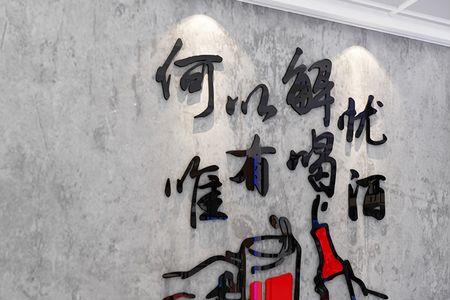 何以解忧
唯有喝酒